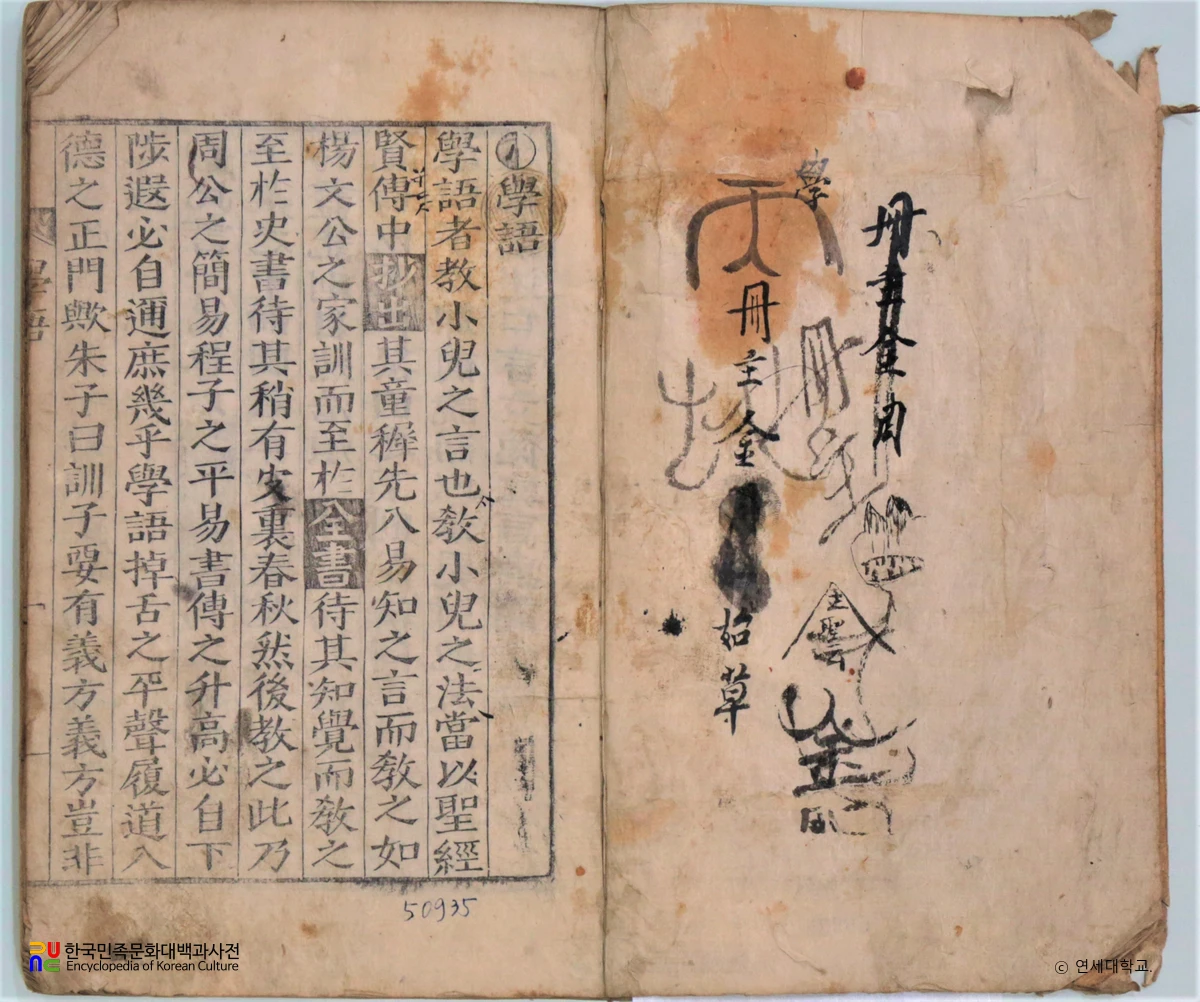 冊主金周
學
天
冊主金
始草
金
學語
學語者教小兒之言也敎小兒之法當以聖經
賢傳中抄出其童穉先入易知之言而敎之如
楊文公之家訓而至於全書待其知覺而敎之
至於史書待其稍有皮裏春秋然後教之此乃
周公之簡易程子之平易書傳之升高必自下
陟遐必自邇庶幾乎學語掉舌之平聲履道入
德之正門歟朱子曰訓子要有義方義方豈非
50935
한국민족문화대백과사전
Encyclopedia of Korean Culture
ⓒ 연세대학교.